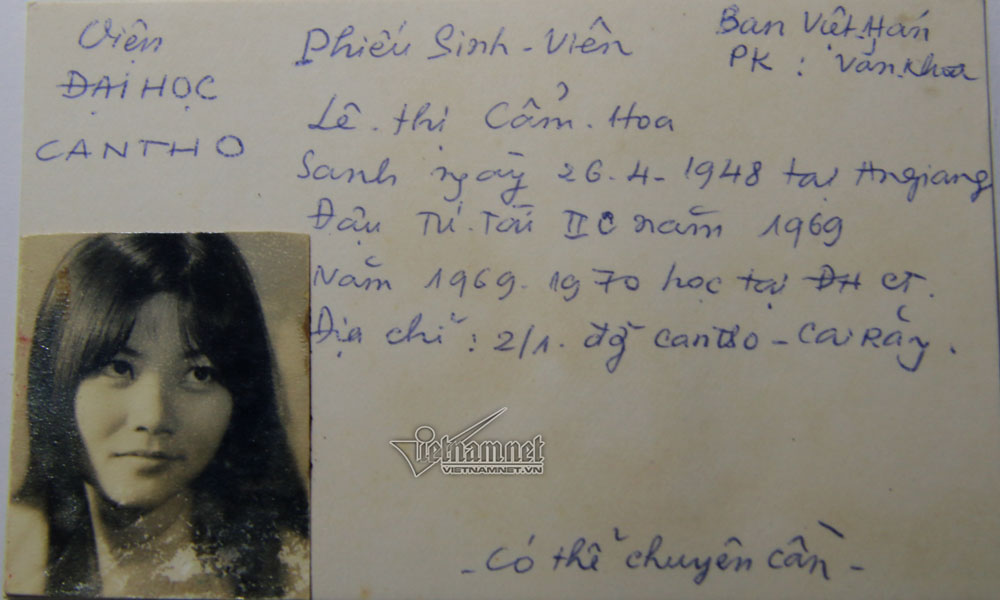 Viện
ĐẠI HỌC
CANTHO
Phiếu Sinh-Viên
Ban Việt Hán
PK: Văn.Khoa
Lê.thị Cẩm.Hoa
Sanh ngày 26.4-1948 tại Angiang
Đậu Tú.Tài II C năm 1969
Năm 1969.1970 học tại ĐH CT.
Địa chỉ: 2/1. đg cantho - Cai Rằng.
vietnamnet
VIETNAMNET.VN
- Có thể chuyên cần -